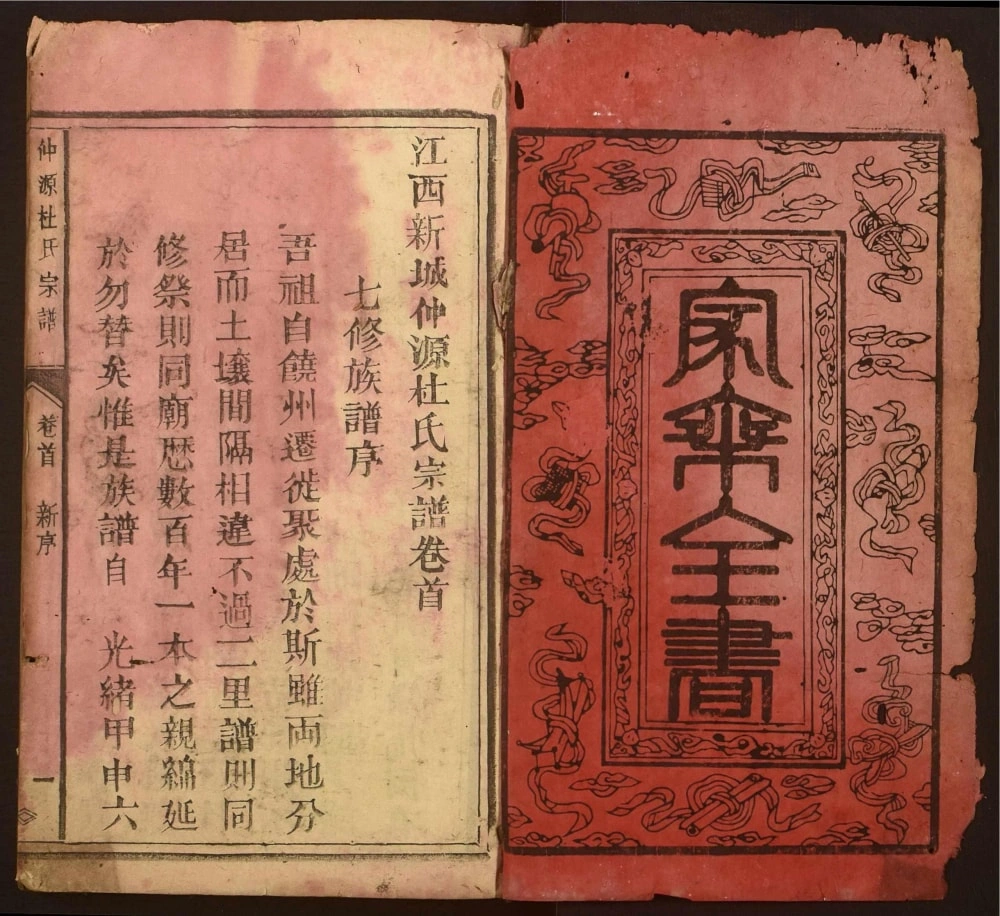 家乘全書
江西新城仲源杜氏宗譜卷首
七修族譜序
吾祖自饒州遷徙聚處於斯雖両地分
居而土壤間隔相違不過二里譜則同
修祭則同廟歷數百年一本之親綿延
於勿替矣惟是族譜自 光緒甲申六
仲源杜氏宗譜 卷首 新序 一